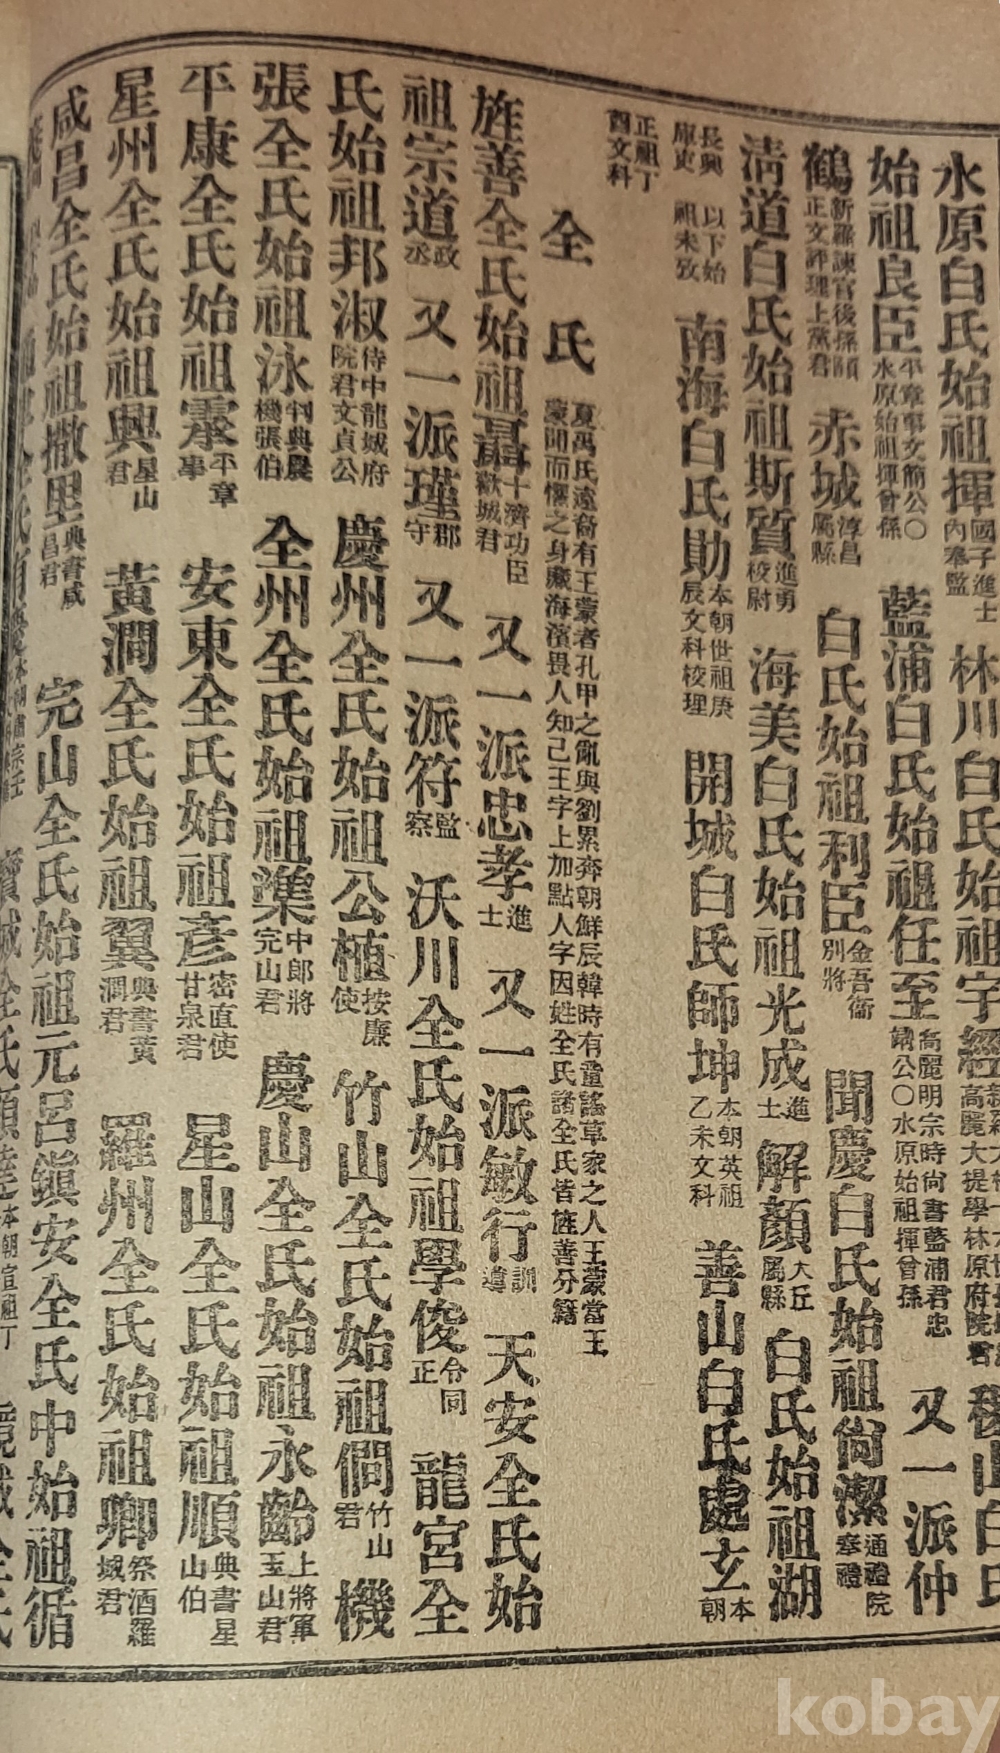 水原白氏始祖揮國子進士內奉監 林川白氏始祖宇經 高麗大提學林原府院君 稷山白氏
始祖良臣平章事文簡公〇水原始祖揮曾孫 藍浦白氏始祖任至高麗明宗時尙書藍浦君忠肅公〇水原始祖揮曾孫 又一派仲
鶴新羅諫官後孫 正文評理上黨君 赤城淳昌屬縣 白氏始祖利臣金吾衛別將 聞慶白氏始祖尙潔通禮院奉禮
淸道白氏始祖斯質進勇校尉 海美白氏始祖光成進士 解顏大丘屬縣 白氏始祖湖
長興庫吏 以下始祖未攷 南海白氏勛本朝世祖庚辰文科校理 開城白氏師坤本朝英祖乙未文科 善山白氏處玄本朝
正祖丁酉文科
全氏 夏禹氏遠裔有王蒙者孔甲之亂與劉累奔朝鮮辰韓時有童謠草家之人王蒙當王蒙聞而懼之身廢海濱畏人知己王字上加點人字因姓全氏諸全氏皆旌善分籍
旌善全氏始祖聶十濟功臣歡城君 又一派忠孝進士 又一派敏行訓導 天安全氏始
祖宗道政丞 又一派瑾郡守 又一派符監察 沃川全氏始祖學俊令同正 龍宮全
氏始祖邦淑侍中龍城府院君文貞公 慶州全氏始祖公植按廉使 竹山全氏始祖僩竹山君 機
張全氏始祖泳判典農機張伯 全州全氏始祖潗中郞將完山君 慶山全氏始祖永齡上將軍玉山君
平康全氏始祖 平章事 安東全氏始祖彥密直使甘泉君 星山全氏始祖順典書星山伯
星州全氏始祖興星山君 黃澗全氏始祖翼典書黃澗君 羅州全氏始祖卿祭酒羅城君
咸昌全氏始祖撒里典書咸昌君 完山全氏始祖元呂 鎭安全氏中始祖循